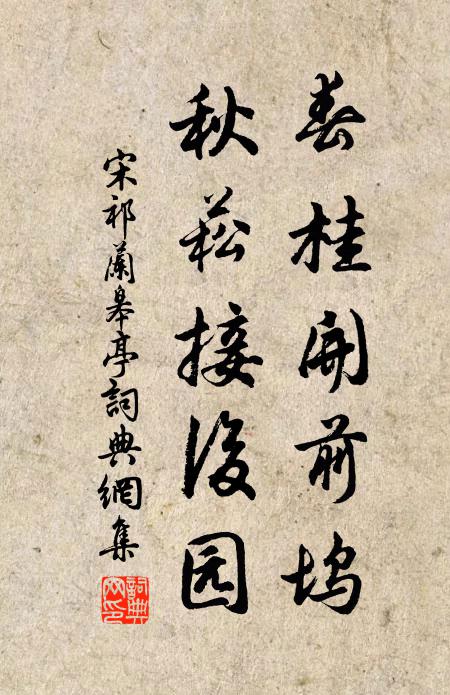 春桂開前塢
秋菘接後园
宋祁蘭皋亭詞典網集
詞典